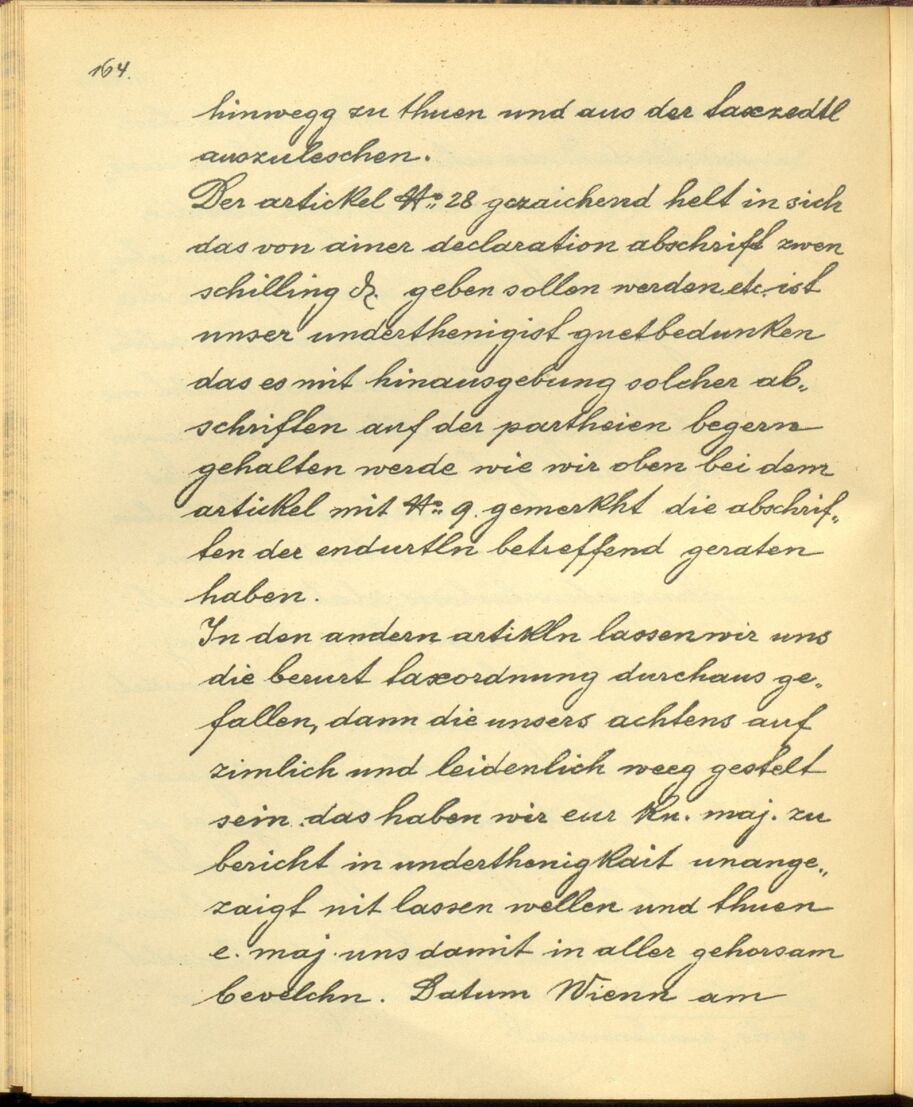 164.
hinwegg zu thuen und aus der taxzedtl
auszuleschen.
Der artickel No: 28 gezaichend helt in sich
das von ainer declaration abschrift zwen
schilling ₰. geben sollen werden etc. ist
unser underthenigist guetbedunken
das es mit hinausgebung solcher ab„
schriften auf der partheien begern
gehalten werde wie wir oben bei dem
artickel mit No: 9. gemerkht die abschrif„
ten der endurtln betreffend geraten
haben.
In den andern artikln lassen wir uns
die berurt taxordnung durchaus ge„
fallen, dann die unsers achtens auf
zimlich und leidenlich weeg gestelt
sein. das haben wir eur ku. maj. zu
bericht in underthenigkait unange„
zaigt nit lassen wellen und thuen
e. maj. uns damit in aller gehorsam
bevelchn. Datum Wienn am